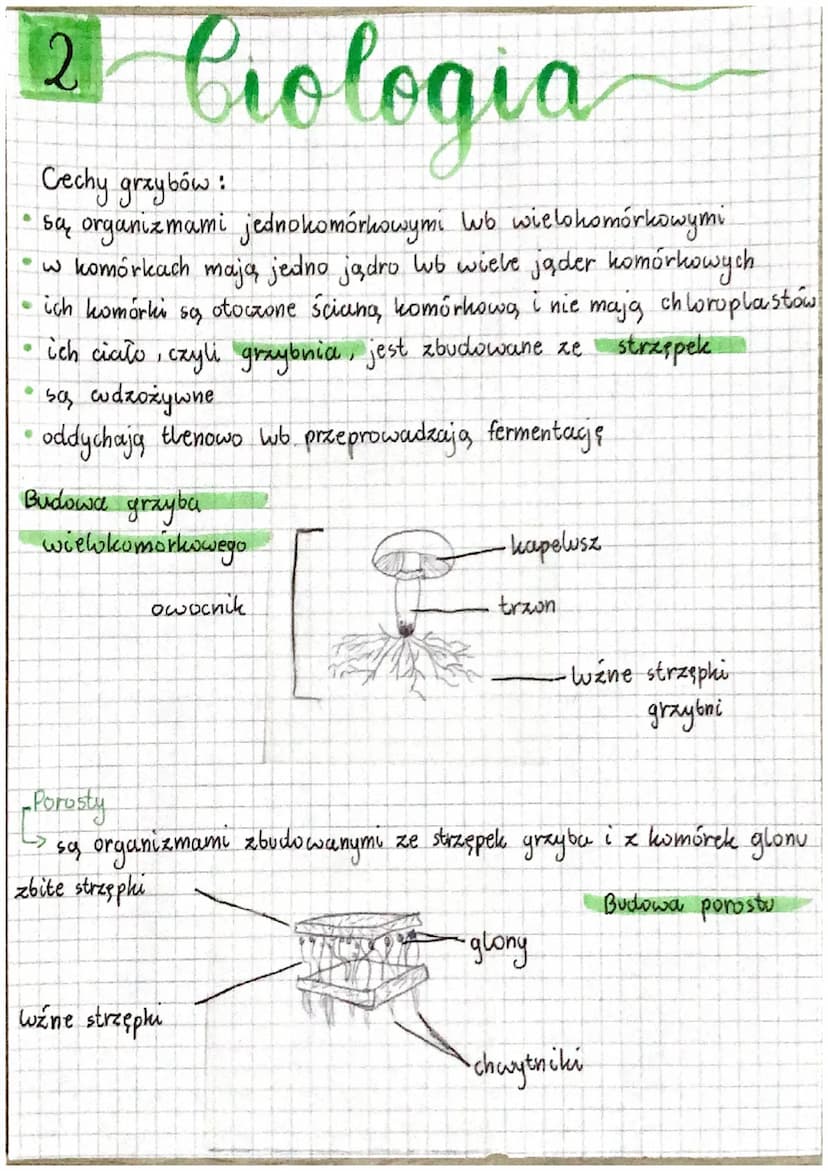 2
Biologia
Cechy grzybów:
• są organizmami jednokomórkowymi lub wielokomórkowymi
• w komórkach mają jedno jądro lub wiele jąder komórkowych
• ich komórki są otoczone ścianą komórkową i nie mają chloroplastów
• ich ciało, czyli grzybnia, jest zbudowane ze strzępek
• są cudzożywne
• oddychają tlenowo lub przeprowadzają fermentację
Budowa grzyba
wielokomórkowego
kapelusz
owocnik
trzon
luźne strzępki
grzybni
Porosty
↳ są organizmami zbudowanymi ze strzępek grzyba i z komórek glonu
zbite strzępki
Budowa porostu
glony
luźne strzępki
chwytniki